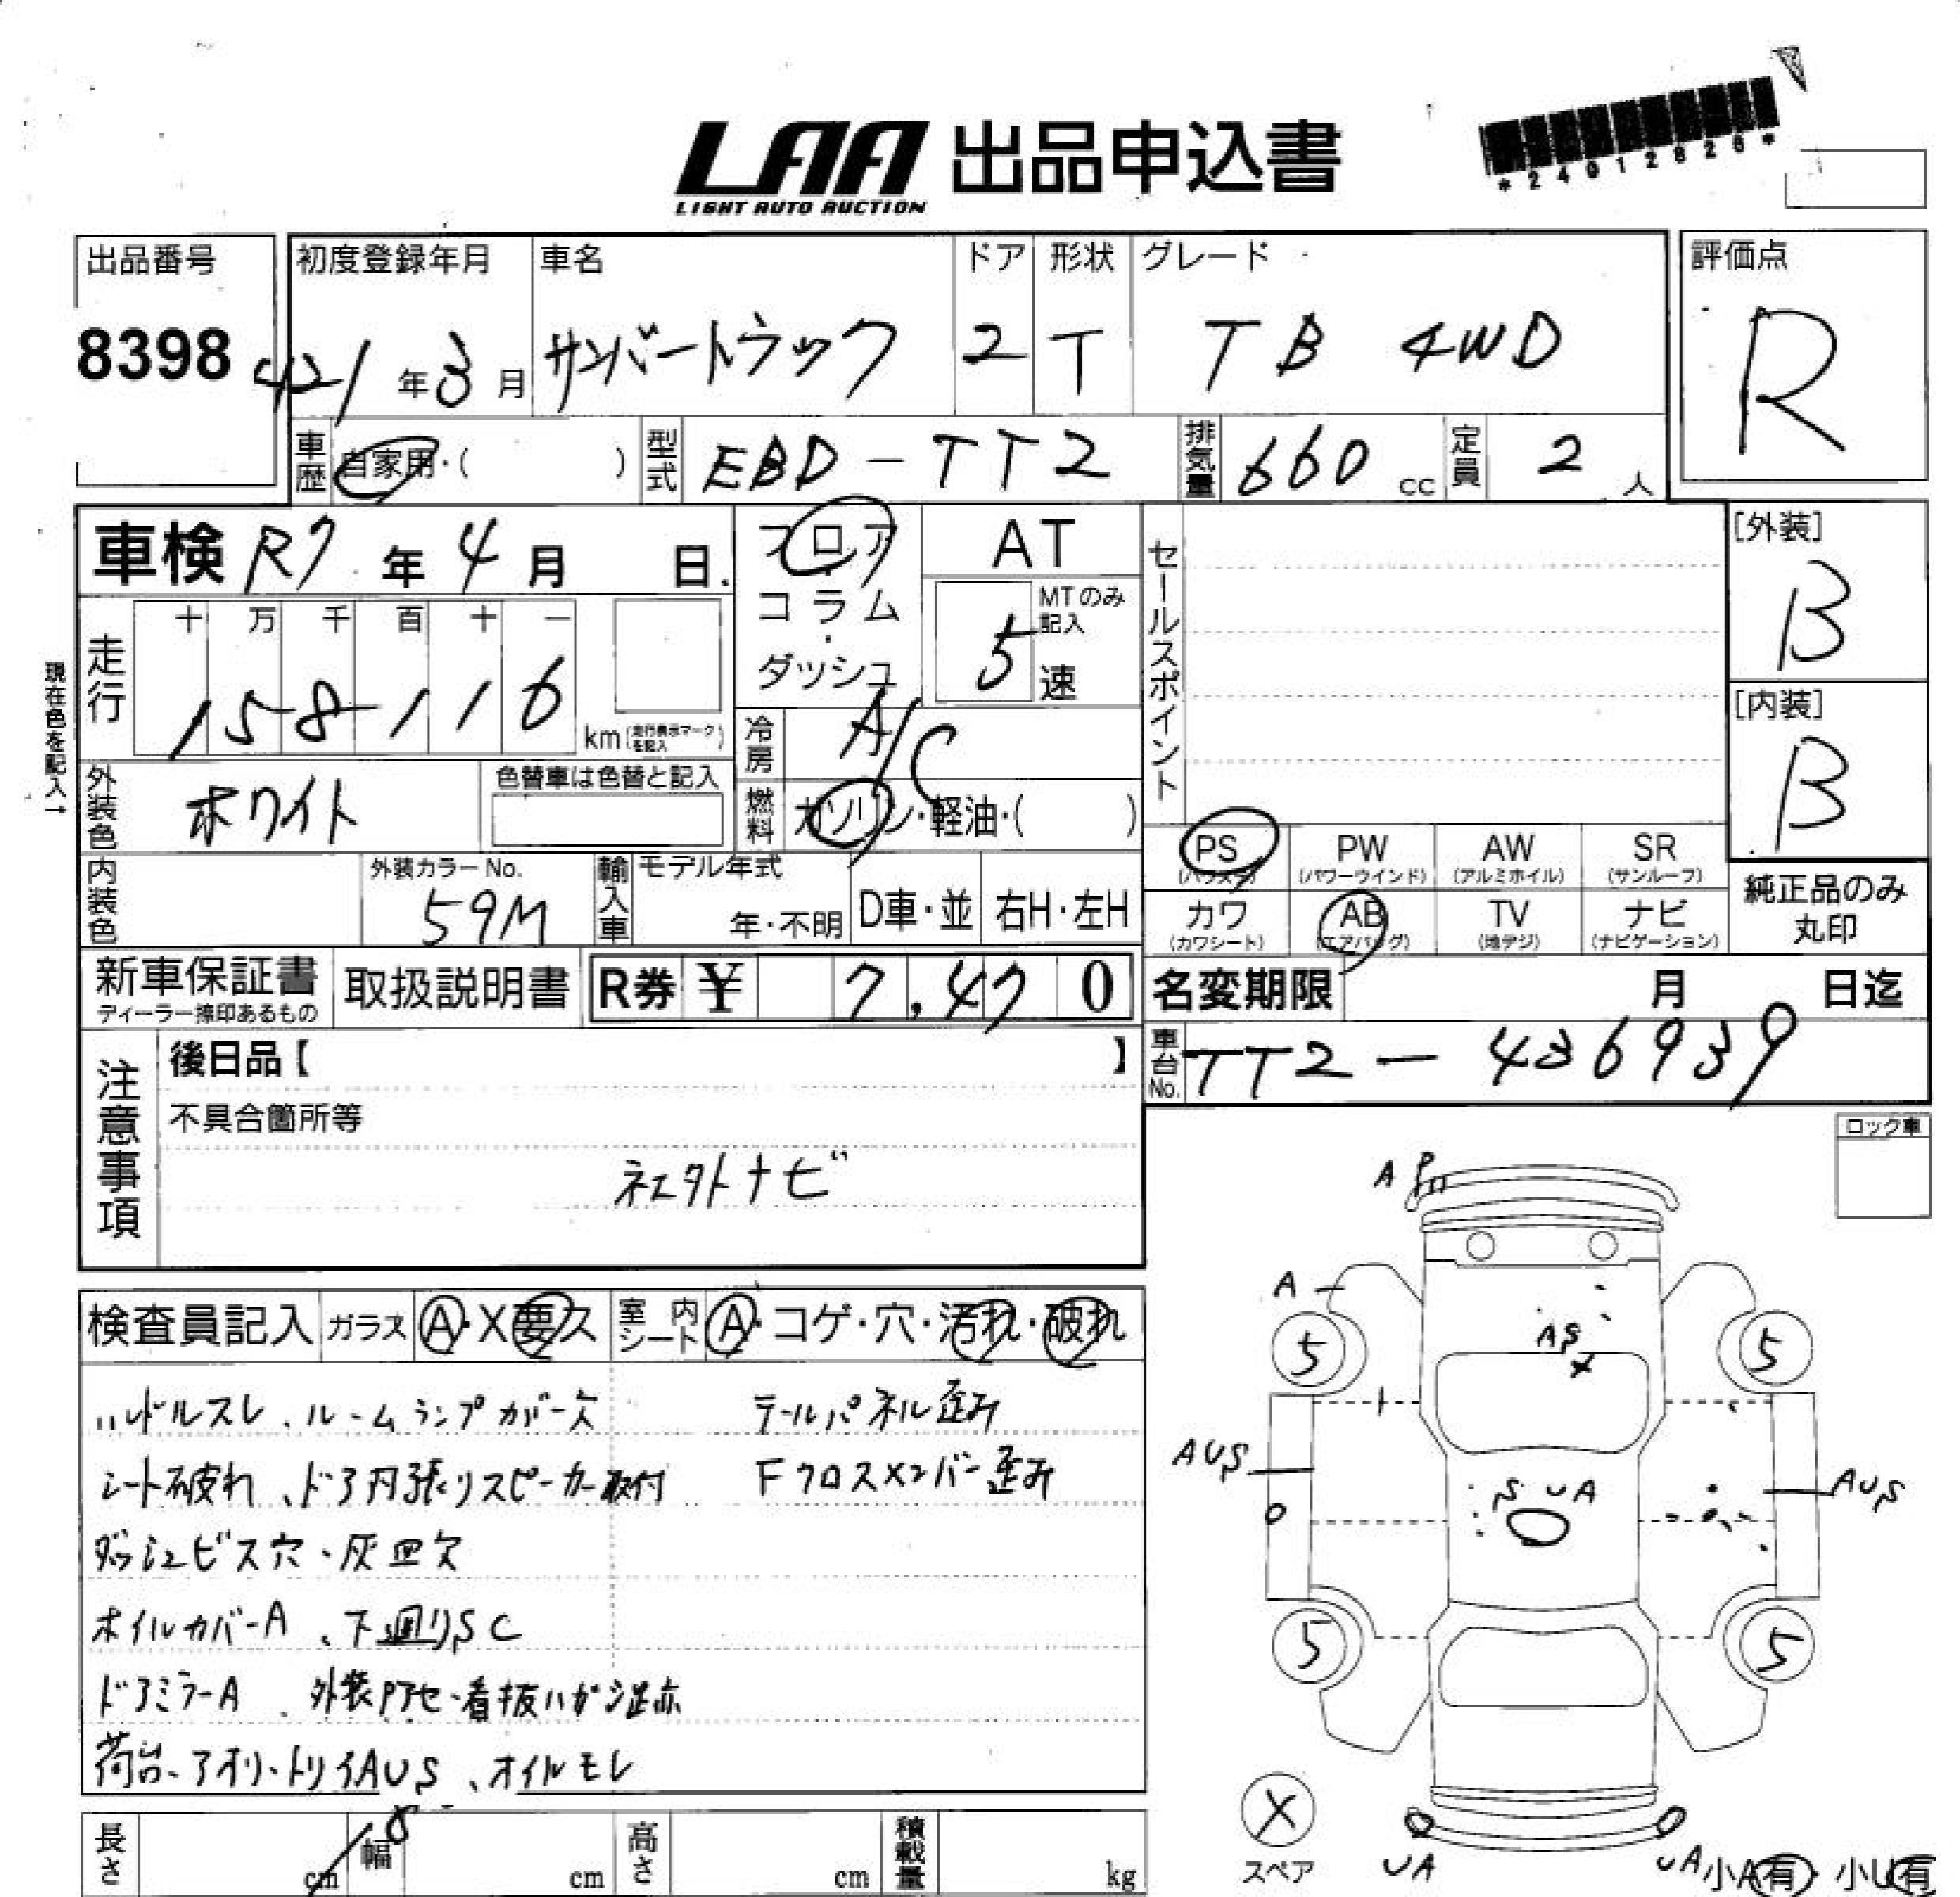 LAA 出品申込書
LIGHT AUTO AUCTION
*24012826*
出品番号 初度登録年月 車名 ドア 形状 グレード 評価点
8398 H21年3月 サンバートラック 2 T TB 4WD R
車歴 自家用・( ) 型式 EBD-TT2 排気量 660 cc 定員 2 人
車検 R7年4月 日 フロア・コラム・ダッシュ AT
MTのみ記入 5 速
セールスポイント
[外装] B
[内装] B
走行 十 万 千 百 十 一
158116 km (走行表示マークを記入)
現在色を記入→
冷房 A/C
燃料 ガソリン・軽油・( )
外装色 ホワイト 色替車は色替と記入
内装色 外装カラーNo. 59M 輸入車 モデル年式 年・不明 D車・並 右H・左H
PS (パワステ) PW (パワーウインド) AW (アルミホイル) SR (サンルーフ)
カワ (カワシート) AB (エアバッグ) TV (地デジ) ナビ (ナビゲーション)
純正品のみ丸印
新車保証書 ディーラー捺印あるもの 取扱説明書 R券 ¥ 7,470 名変期限 月 日迄
車台No. TT2-436939
注意事項 後日品【 】
不具合箇所等
社外ナビ
ロック車
検査員記入 ガラス A・X要欠 室内シート A・コゲ・穴・汚れ・破れ
ハンドルスレ、ルームランプカバー欠 テールパネル歪み
シート破れ、ドア内張リスピーカー取付 Fクロスメンバー歪み
ダッシュビス穴・灰皿欠
ホイルカバーA、下廻りSC
ドアミラーA、外装Pアセ・看板ハガシ跡
荷台、アオリ、トリイAUS、オイルモレ
AP
A
5 5
AS
X
AUS SUA AUS
5 5
X
スペア UA UA 小A有・小U有
長さ cm 幅 cm 高さ cm 積載量 kg